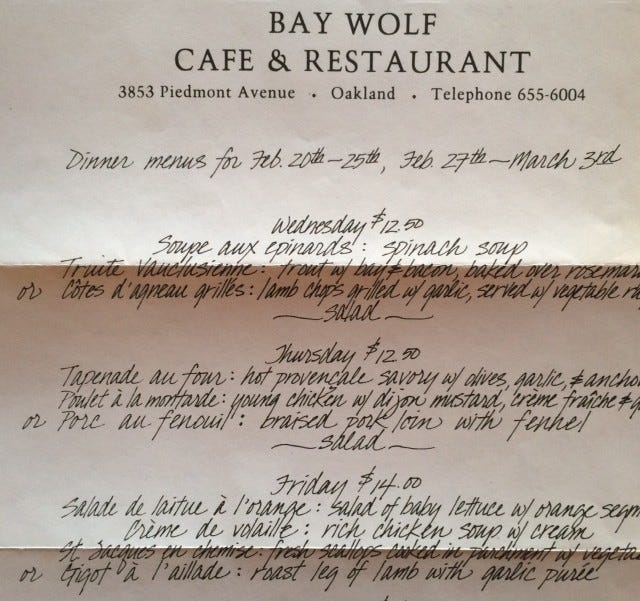 BAY WOLF
CAFE & RESTAURANT
3853 Piedmont Avenue • Oakland • Telephone 655-6004
Dinner menus for Feb. 20th—25th, Feb. 27th—March 3rd
Wednesday $12.50
Soupe aux epinards: spinach soup
Truite Vauclusienne: trout w/ bay & bacon, baked over rosemar
or Côtes d'agneau grilles: lamb chops grilled w/ garlic, served w/ vegetable
salad
Thursday $12.50
Tapenade au four: hot provençale savory w/ olives, garlic, & ancho
Poulet à la montarde: young chicken w/ dijon mustard, crème fraîche &
or Porc au fenouil: braised pork loin with fennel
salad
Friday $14.00
Salade de laitue à l'orange: salad of baby lettuce w/ orange segm
Crème de volaille: rich chicken soup w/ cream
St. Jacques en chemise: fresh scallops cooked in parchment w/ vegeta
or Gigot à l'aillade: roast leg of lamb with garlic purée